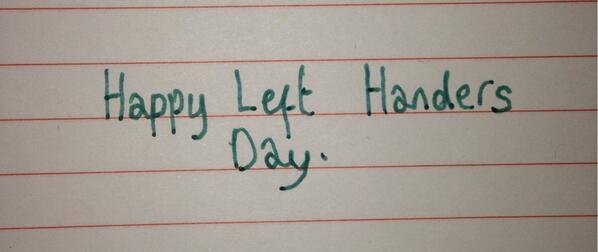 Happy Left Handers
Day.